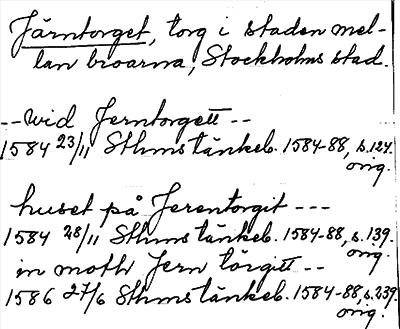 Järntorget, torg i staden mel-
lan broarna, Stockholms stad.
--wid Jerntorgett--
1584 23/11 Sthms tänkeb. 1584-88, s.124.
orig.
huset på Jerentorgit ---
1584 28/11 Sthms tänkeb. 1584-88, s.139.
orig.
in moth Jern törgitt --
1586 27/6 Sthms tänkeb. 1584-88, s.239.
orig.